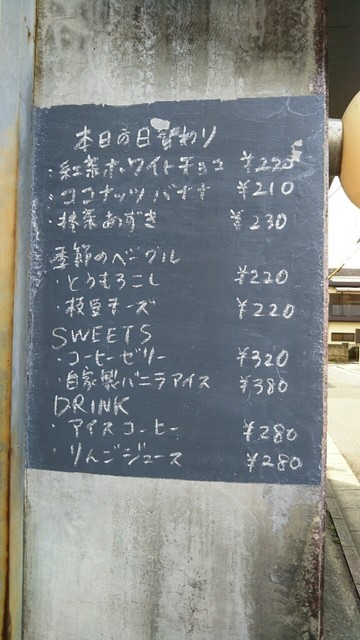 本日の日替わり
・紅茶ホワイトチョコ ¥220
・ココナッツバナナ ¥210
・抹茶あずき ¥230
季節のベーグル
・とうもろこし ¥220
・枝豆チーズ ¥220
SWEETS
・コーヒーゼリー ¥320
・自家製バニラアイス ¥380
DRINK
・アイスコーヒー ¥280
・りんごジュース ¥280